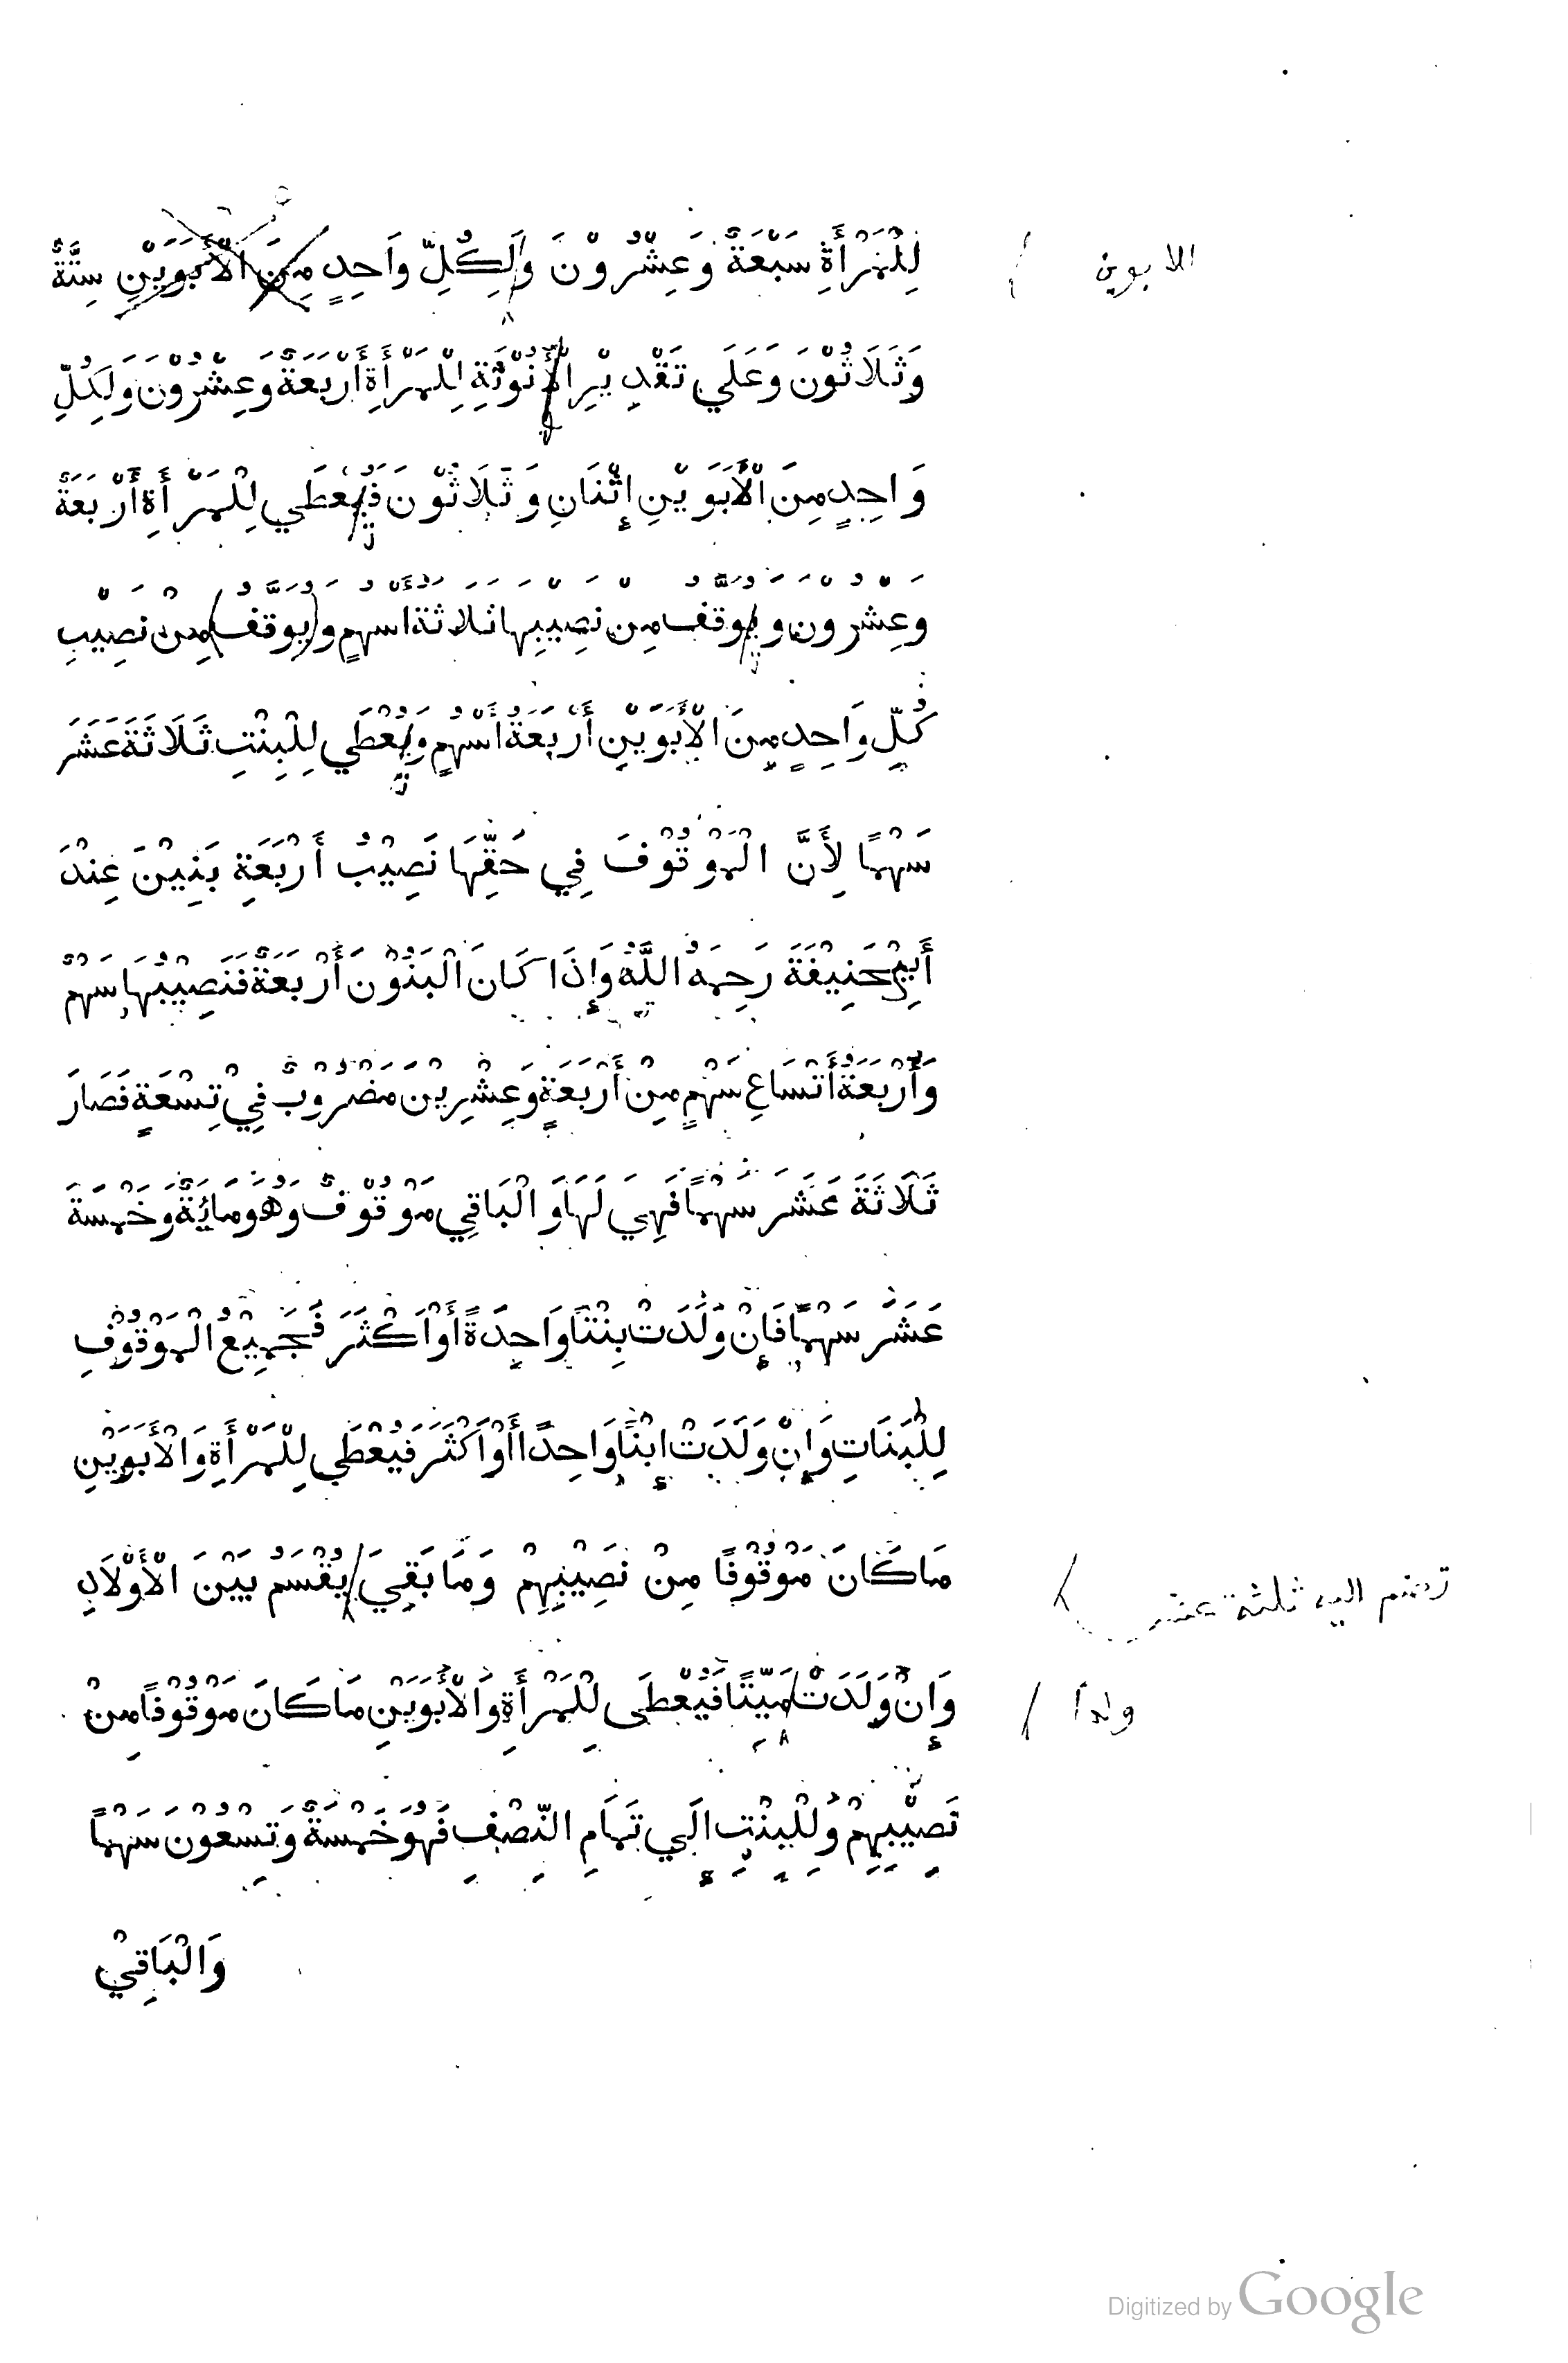 لِلْمَرْأَةِ سَبْعَةٌ وَعِشْرُوْنَ وَلِكُلِّ وَاحِدٍ مِنَ الْأَبَوَيْنِ سِتَّةٌ
الابوين
وَثَلَاثُوْنَ وَعَلَي تَقْدِيْرِ الْأُنُوْثَةِ لِلْمَرْأَةِ أَرْبَعَةٌ وَعِشْرُوْنَ وَلِكُلِّ
وَاحِدٍ مِنَ الْأَبَوَيْنِ إِثْنَانِ وَثَلَاثُوْنَ فَيُعْطَي لِلْمَرْأَةِ أَرْبَعَةٌ
وَعِشْرُوْنَ وَيُوَقَّفُ مِنْ نَصِيْبِهَا ثَلَاثَةُ أَسْهُمٍ وَ(يُوَقَّفُ) مِنْ نَصِيْبِ
كُلِّ وَاحِدٍ مِنَ الْأَبَوَيْنِ أَرْبَعَةُ أَسْهُمٍ وَيُعْطَي لِلْبِنْتِ ثَلَاثَةَ عَشَرَ
سَهْمًا لِأَنَّ الْمَوْقُوْفَ فِي حَقِّهَا نَصِيْبُ أَرْبَعَةِ بَنِيْنَ عِنْدَ
أَبِيْ حَنِيْفَةَ رَحِمَهُ اللَّهُ وَإِذَا كَانَ الْبَنُوْنَ أَرْبَعَةً فَنَصِيْبُهَا سَهْمٌ
وَأَرْبَعَةُ أَتْسَاعِ سَهْمٍ مِنْ أَرْبَعَةٍ وَعِشْرِيْنَ مَضْرُوْبٌ فِيْ تِسْعَةٍ فَصَارَ
ثَلَاثَةَ عَشَرَ سَهْمًا فَهِيَ لَهَا وَالْبَاقِي مَوْقُوْفٌ وَهُوَ مِائَةٌ وَخَمْسَةَ
عَشَرَ سَهْمًا فَإِنْ وَلَدَتْ بِنْتًا وَاحِدَةً أَوْ أَكْثَرَ فَجَمِيْعُ الْمَوْقُوْفِ
لِلْبَنَاتِ وَإِنْ وَلَدَتْ إِبْنًا وَاحِدًا أَوْ أَكْثَرَ فَيُعْطَي لِلْمَرْأَةِ وَالْأَبَوَيْنِ
مَا كَانَ مَوْقُوْفًا مِنْ نَصِيْبِهِمْ وَمَا بَقِيَ يُقْسَمُ بَيْنَ الْأَوْلَادِ
تضم اليه ثلثة عشر
وَإِنْ وَلَدَتْ مَيِّتًا فَيُعْطَى لِلْمَرْأَةِ وَالْأَبَوَيْنِ مَا كَانَ مَوْقُوْفًا مِنْ
ولدا
نَصِيْبِهِمْ وَلِلْبِنْتِ إِلَي تَمَامِ النِّصْفِ فَهُوَ خَمْسَةٌ وَتِسْعُوْنَ سَهْمًا
وَالْبَاقِيْ
Digitized by Google